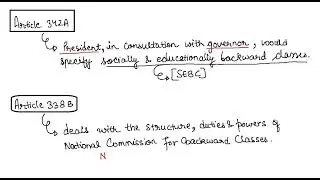 Article 342A
President, in consultation with governor, would
specify socially & educationally backward classes.
[SEBC]
Article 338B
deals with the structure, duties & powers of
National Commission for Backward Classes.
N